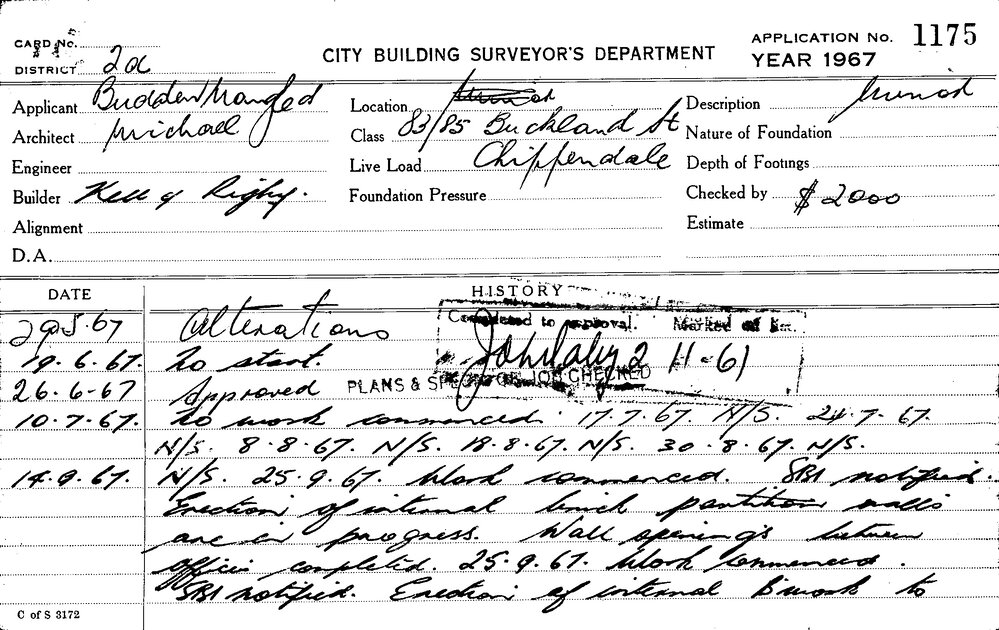 CARD No.
DISTRICT 2a
CITY BUILDING SURVEYOR'S DEPARTMENT
APPLICATION No. 1175
YEAR 1967
Applicant
Architect Michael
Engineer
Builder Kell & Rigby.
Alignment
D.A.
Location
Class 83/85 Buckland St
Live Load Chippendale
Foundation Pressure
Description
Nature of Foundation
Depth of Footings
Checked by $2000
Estimate
DATE
HISTORY
29.5.67 Alterations
19.6.67. To start.
26.6-67 Approved
PLANS & JOB CHECKED
10.7.67. No work commenced. 17.7.67. N/S. 24.7.67.
N/S. 8.8.67. N/S. 18.8.67. N/S. 30.8.67. N/S.
14.9.67. N/S. 25.9.67. Work commenced. SBI notified.
Erection of internal brick partition walls
are in progress. Wall openings between
offices completed. 25.9.67. Work commenced.
SBI notified. Erection of internal Bwork to
C of S 3172